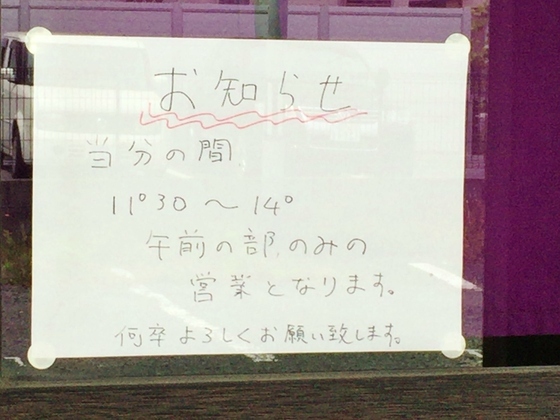 お知らせ
当分の間
11°30〜14°
午前の部のみの
営業となります。
何卒よろしくお願い致します。